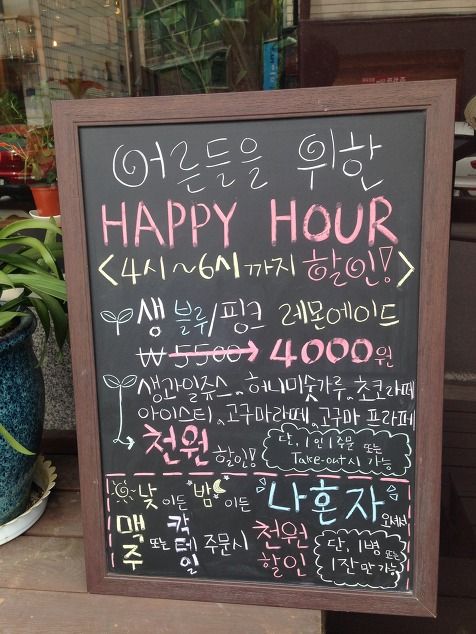 어른들을 위한
HAPPY HOUR
<4시~6시까지 할인!>
생 블루/핑크 레몬에이드
₩5500→4000원
생과일쥬스. 허니미숫가루. 초코라떼
아이스티. 고구마라떼. 고구마 프라페
천원 할인!
단, 1인 1주문 또는
Take-out시 가능
낮이든 밤이든
"나혼자" 오셔서
맥주 또는 칵테일 주문시
천원 할인
단, 1병 또는
1잔만 가능